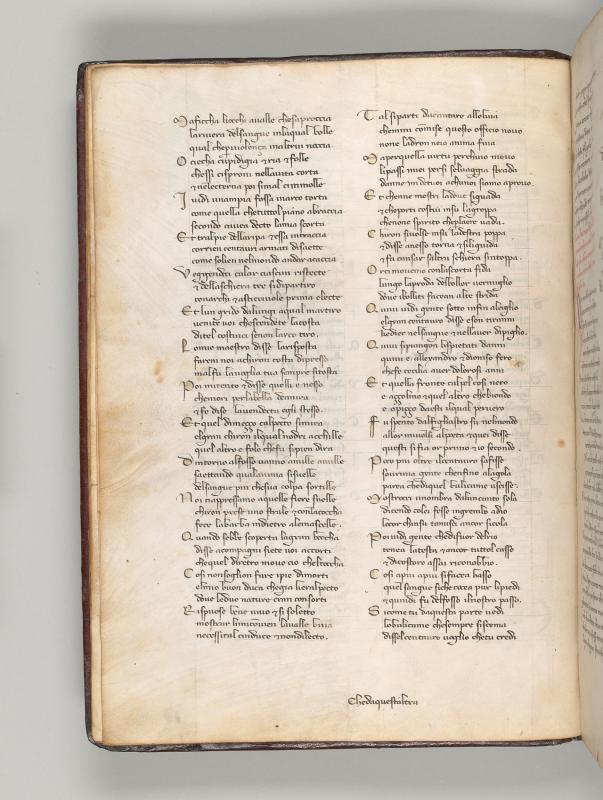 Maficcha liocchi aualle chesaproccia
lariuera delsangue inlaqual bolle
qual cheperuiolença inaltrui noccia
O ciecha cupidigia & ria & folle
chessi cisproni nellauita corta
& nelecterna poi simal cimmolle
I vidi unampia fossa inarco torta
come quella chetuttol piano abraccia
secondo cauea decto lamia scorta
Et tralpie dellaripa & essa intraccia
corrien centauri armati disaette
come solien nelmondo andar acaccia
Veggendoci calar ciascun ristecte
& dellaschiera tre sidipartiro
conarchi & asticciuole prima electe
Et lun grido dalungi aqual martiro
uenite uoi chescendete lacosta
ditel costinci senon larco tiro.
L omio maestro disse larisposta
farem noi achiron costa dipresso
malfu lauoglia tua sempre sitosta
Poi mitento & disse quelli e nesso
chemori perlabella deianira
& fe dise lauendecta egli stesso.
Et quel dimeçço calpecto simira
elgran chiron ilqual nodri acchille
quel altro e folo chefu sipien dira
Dintorno alfosso uanno amille amille
saettando qualanima sisuelle
delsangue piu chesua colpa sortille
Noi ciappressamo aquelle fiere snelle
chiron prese uno strale & conlacoccha
fece labarba indietro alemascelle.
Quando sebbe scoperta lagran boccha
disse acompagni siete uoi accorti
chequel diretro moue cio cheltoccha
Cosi nonsoglion fare ipie dimorti
elmio buon duca chegia lieralpecto
doue ledue nature eran consorti
Rispuose bene uiuo & si soletto
mostrar limicouien laualle buia
necessital cinduce & nondilecto.
Tal siparti dacantare alleluia
chemmi comise questo officio nouo
none ladron neio anima fuia
Maperquella uirtu perchuio mouo
lipassi miei persi seluaggia strada
danne un detuoi achunoi siamo aprouo.
Et chenne mostri ladoue siguada
& cheporti costui insu lagroppa
chenone spirito cheplaere uada.
Chiron siuolse insu ladestra poppa
& disse anesso torna & siliguida
& fa cansar saltri schiera sintoppa.
Orci mouemo conlascorta fida
lungo laproda delbollor uermiglio
doue ibolliti faceano alte strida
Quiui uidi gente sotto infin alciglio
elgran centauro disse eson tiranni
kedier nelsangue & nellauer dipiglio.
Quiui sipiangon lispietati danni
quiui e allexandro & dionisio fero
chefe cecilia auer dolorosi anni
Et quella fronte calpel cosi nero
e aççolino & quel altro chebiondo
e opiçço daesti ilqual peruero
Fu spento dalfigliastro su nelmondo
allor miuolsi alpoeta & quei disse
questi sifia or primo & io secondo.
Poco piu oltre ilcentauro safisse
sourauna gente chenfino alagola
parea chediquel bulicame uscisse.
Mostrocci unombra dalluncanto sola
dicendo colei fesse ingrembo adio
locor chinsu tamisci ancor sicola
Poi uidi gente chedifuor delrio
tenea latesta & ancor tuttol casso
& dicostoro assai riconobbio.
Cosi apiu apiu sifacea basso
quel sangue siche cocea pur lipiedi
& quindi fu delfosso ilnostro passo.
Sicome tu daquesta parte uedi
lobulicame chesempre siscema
disselcentauro uoglio chetu credi
Chedaquestaltra